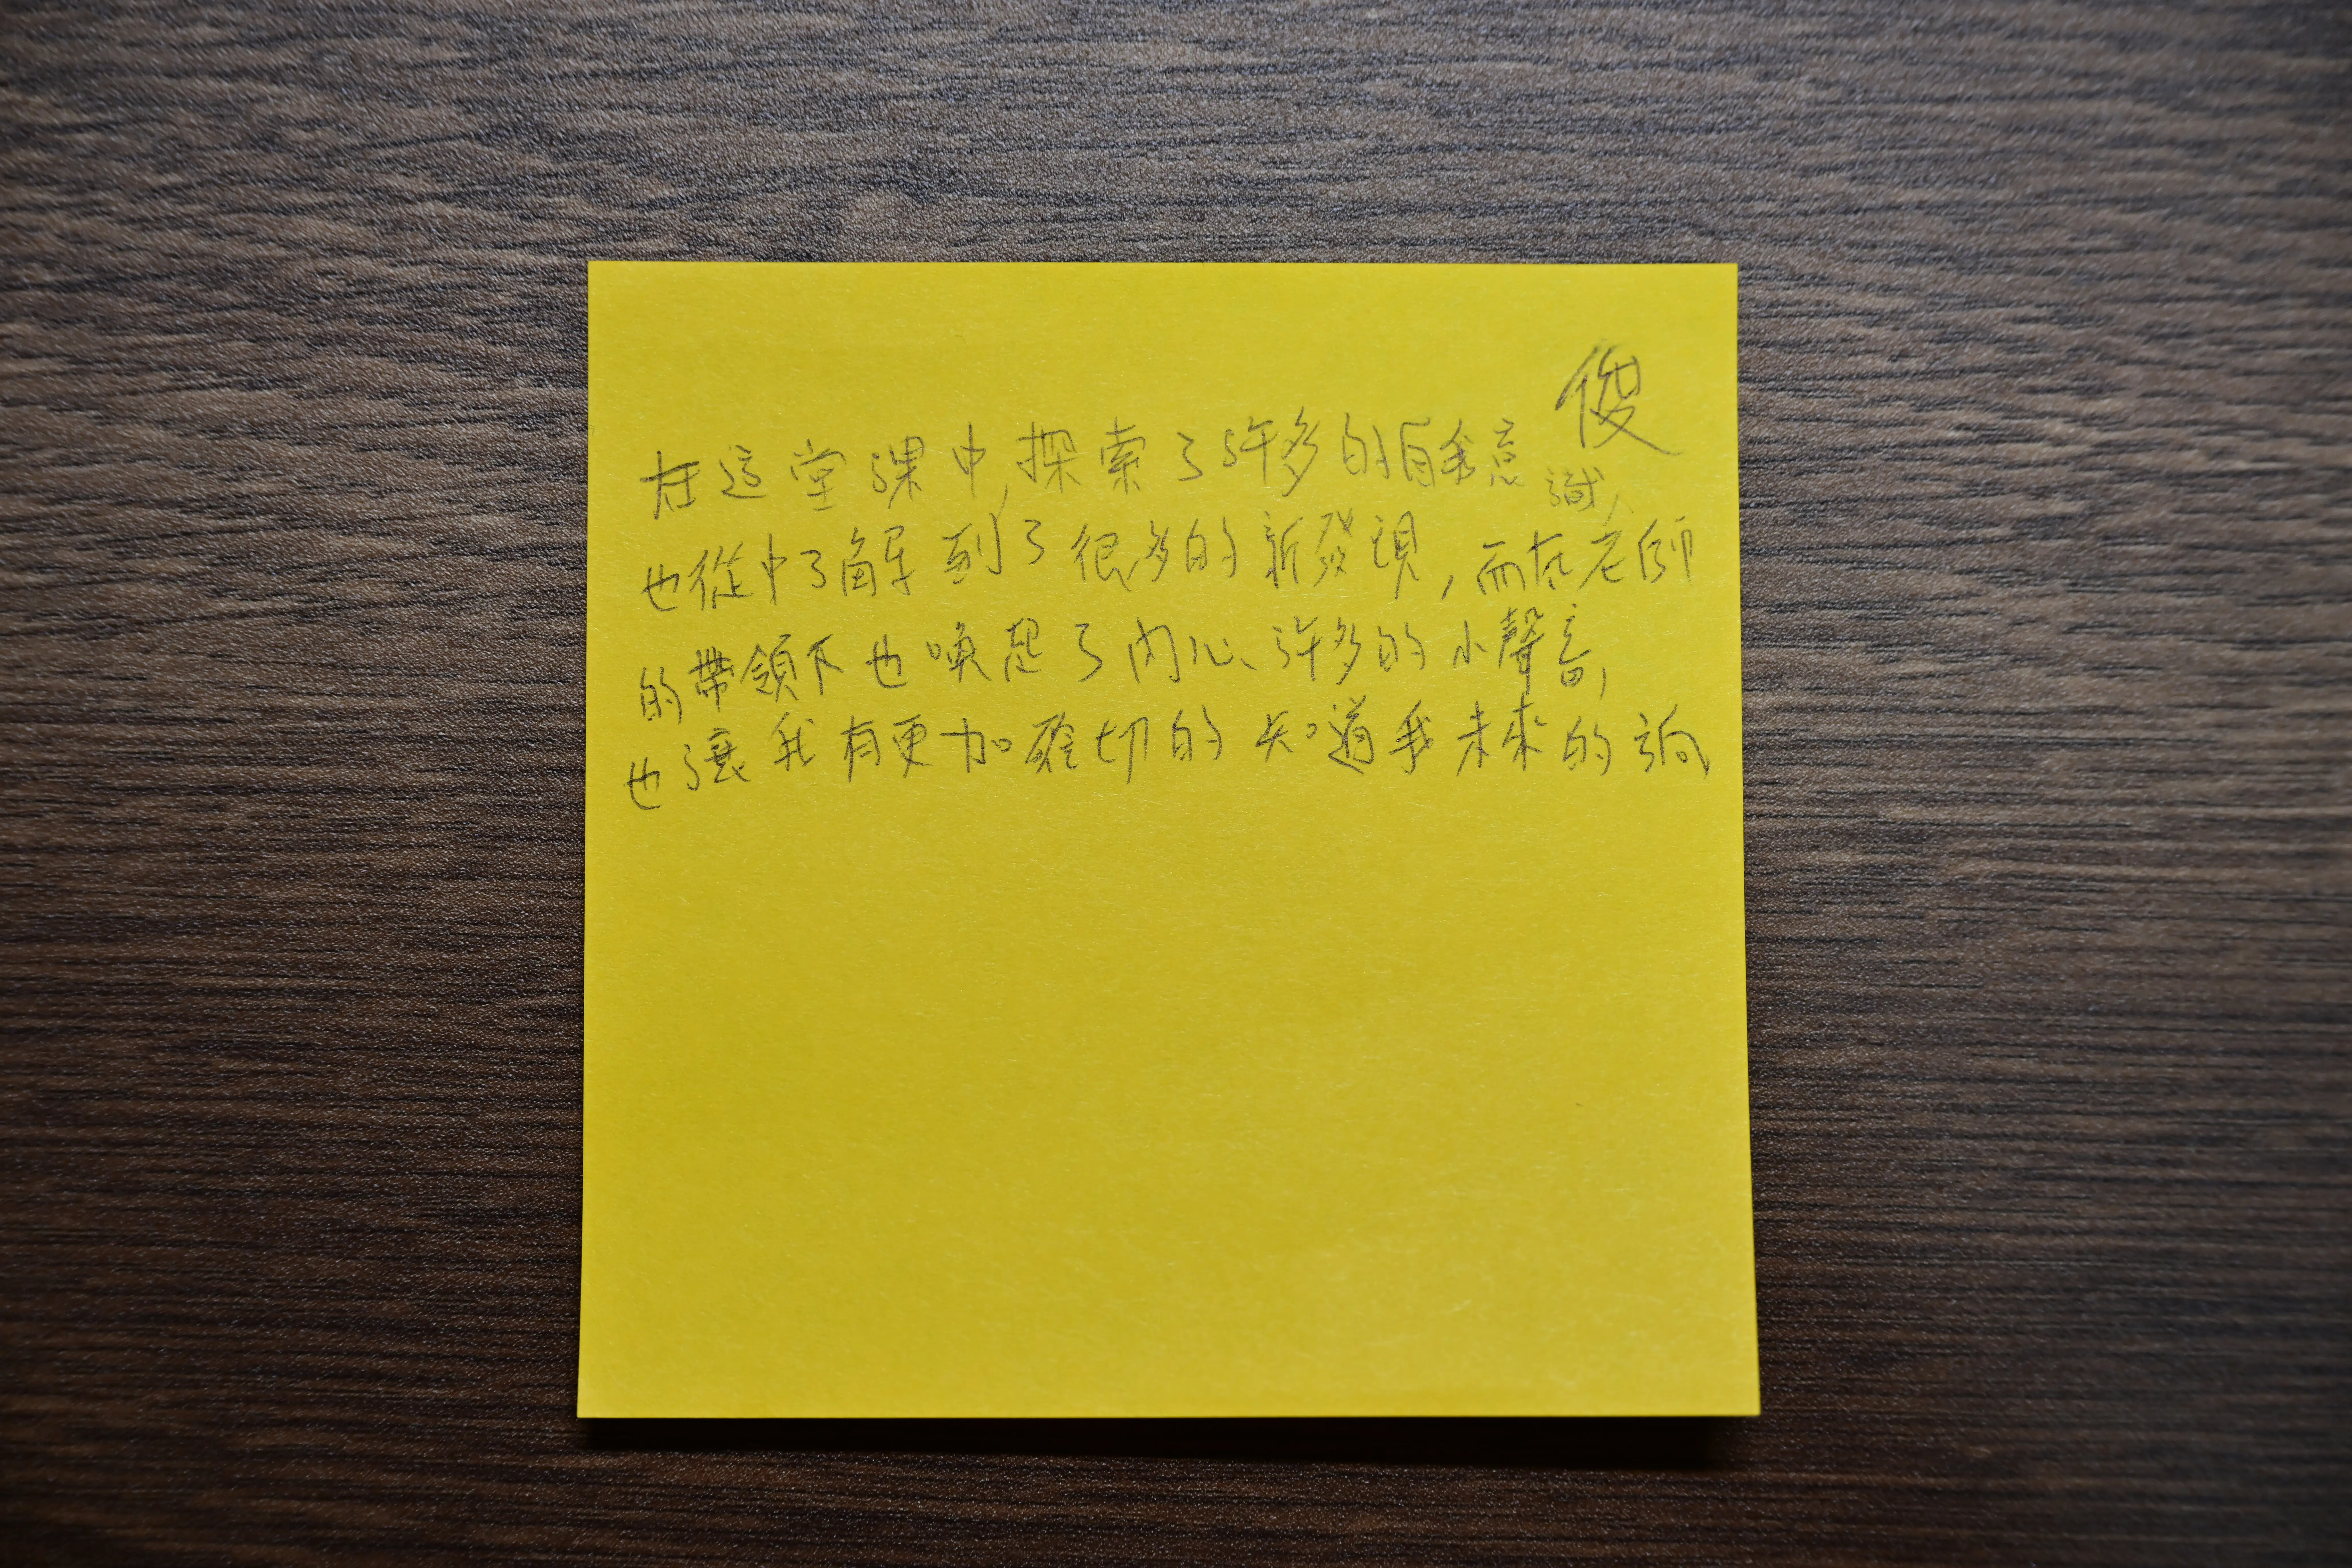 俊
在這堂課中,探索了許多的自我意識,
也從中了解到了很多的新發現,而在老師
的帶領下也喚起了內心許多的小聲音,
也讓我有更加確切的知道我未來的